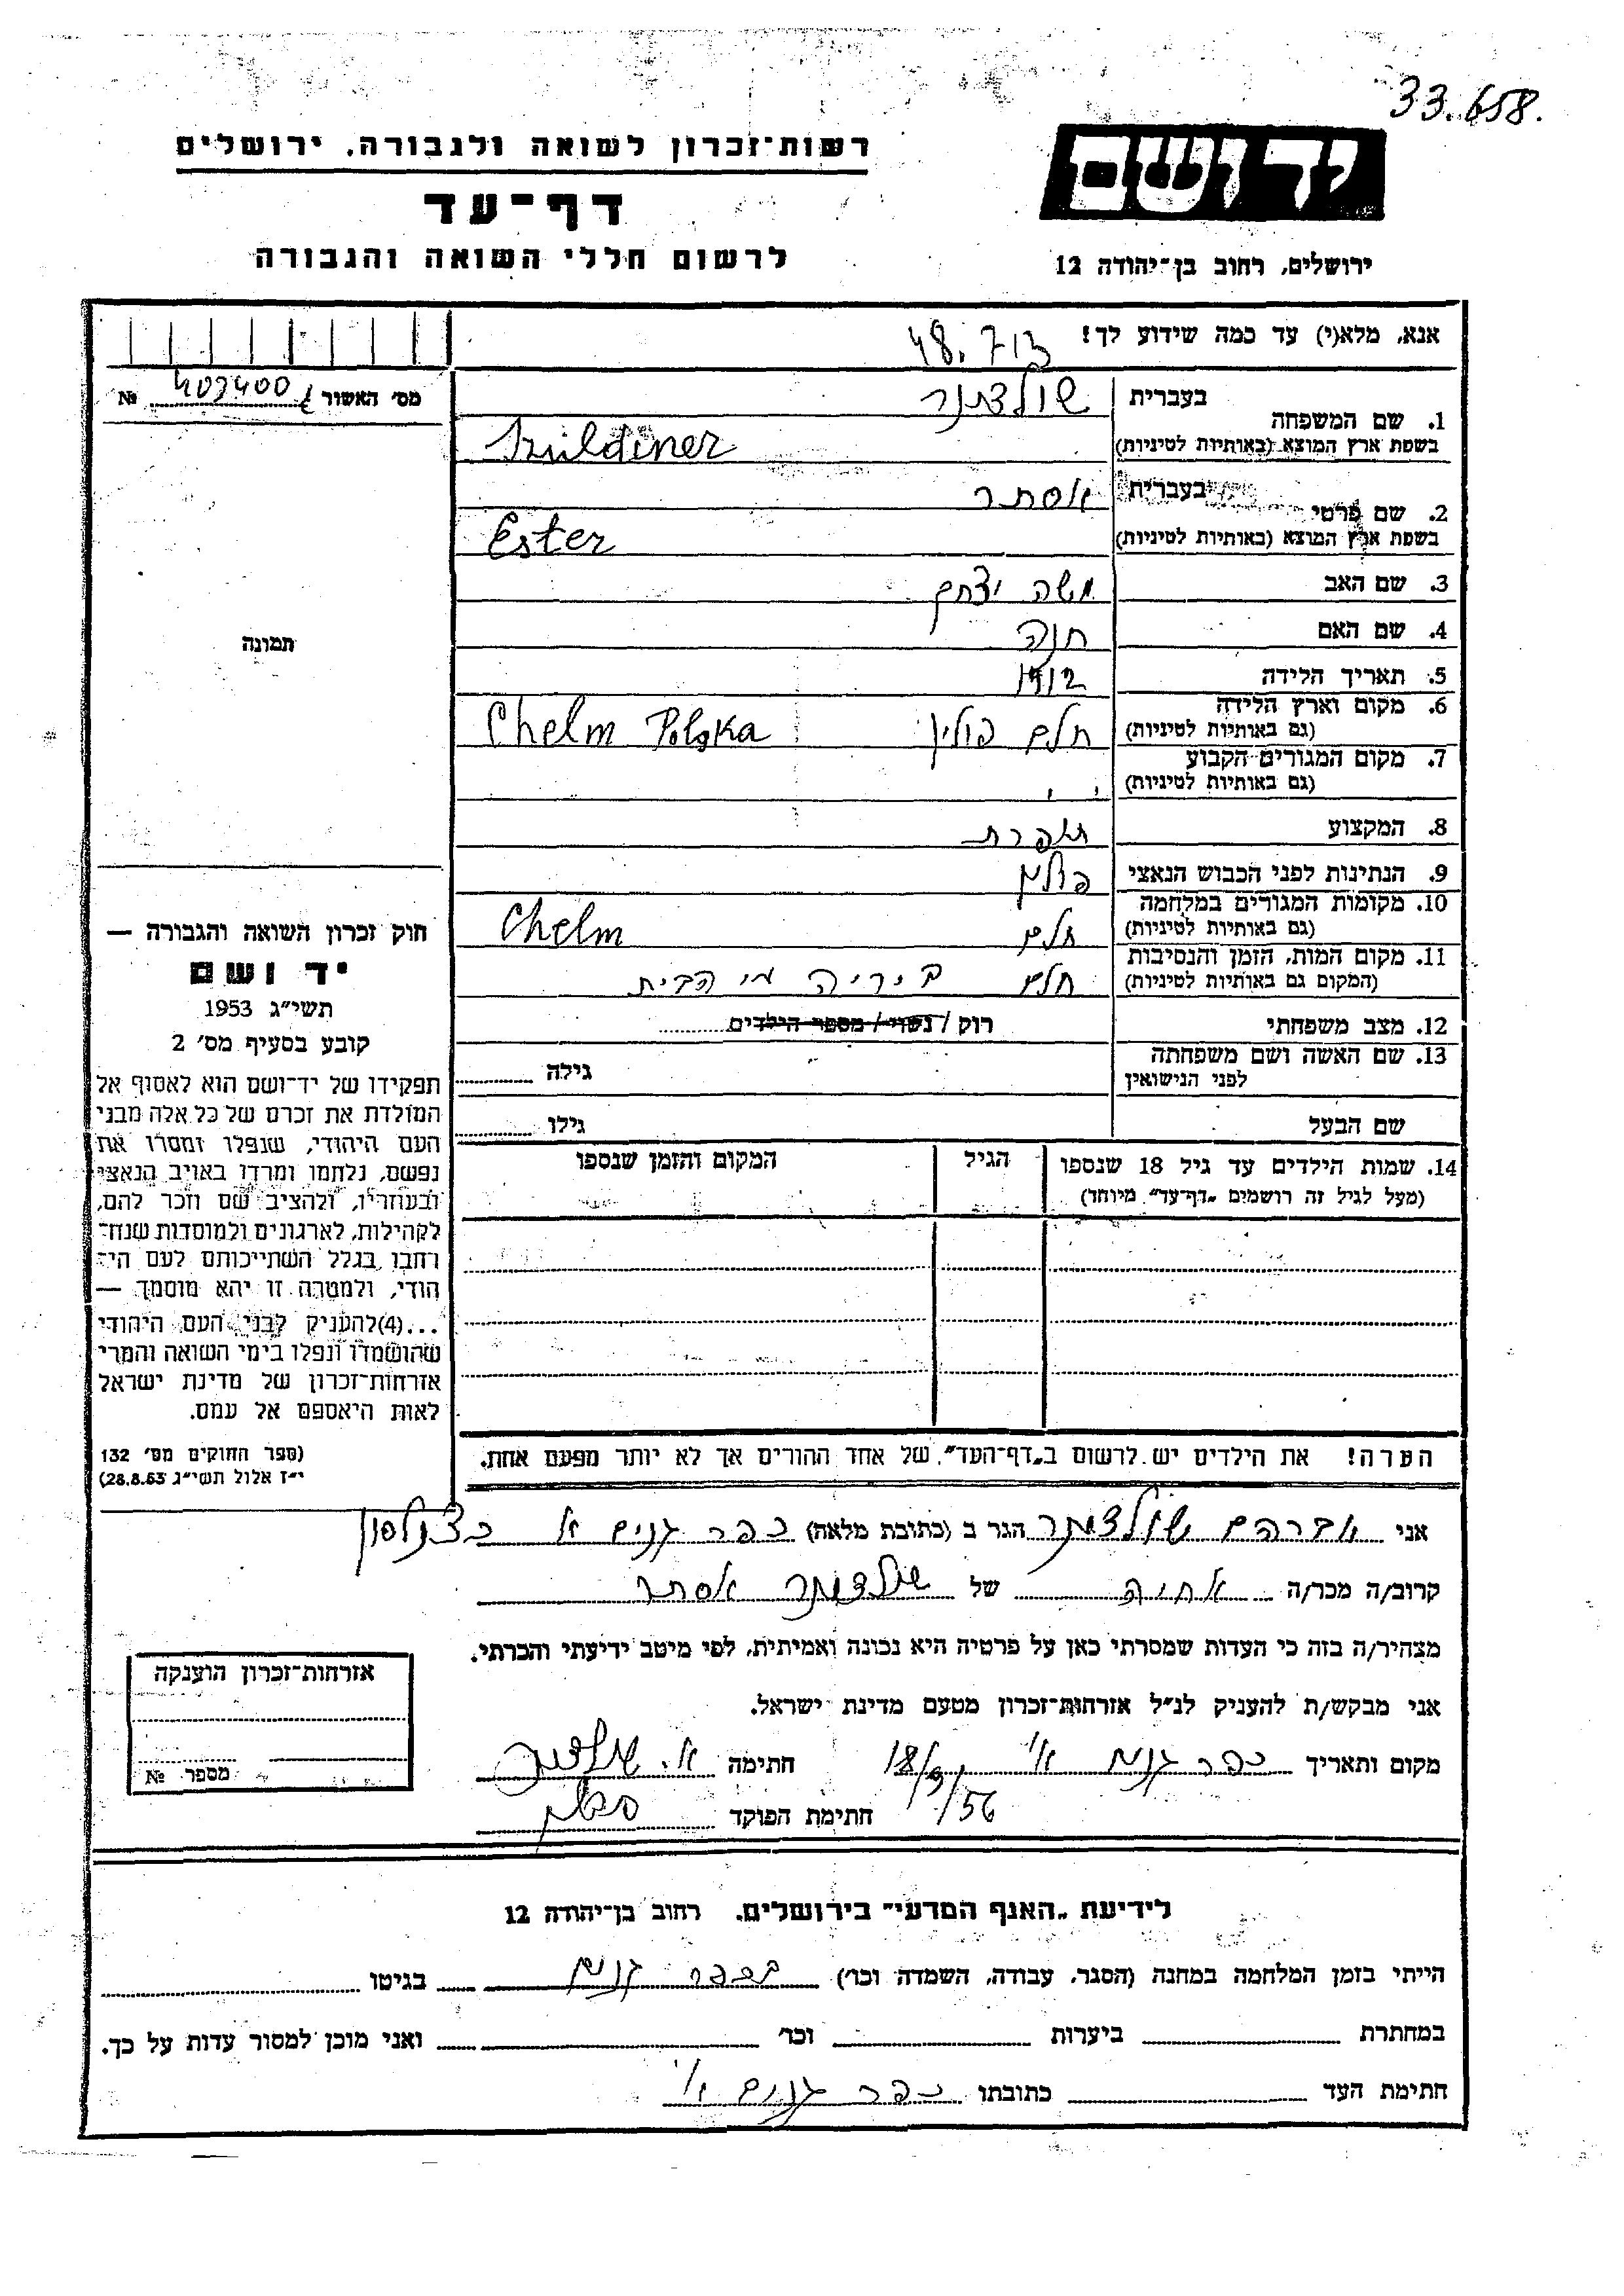 33.658.
רשות־זכרון לשואה ולגבורה. ירושלים
יד ושם
דף־עד
לרשום חללי השואה והגבורה
ירושלים, רחוב בן־יהודה 12
אנא, מלא(י) עד כמה שידוע לך!
48.713
מס׳ האשור №
1. שם המשפחה
בעברית
בשפת ארץ המוצא (באותיות לטיניות)
2. שם פרטי
בעברית אסתר
בשפת ארץ המוצא (באותיות לטיניות) Ester
3. שם האב משה יצחק
4. שם האם חנה
5. תאריך הלידה 1912
6. מקום וארץ הלידה
(גם באותיות לטיניות) חלם פולין Chelm Polska
7. מקום המגורים הקבוע
(גם באותיות לטיניות) " "
8. המקצוע תופרת
9. הנתינות לפני הכבוש הנאצי פולין
10. מקומות המגורים במלחמה
(גם באותיות לטיניות) חלם Chelm
11. מקום המות, הזמן והנסיבות
(המקום גם באותיות לטיניות) חלם
12. מצב משפחתי רוק / נשוי / מספר הילדים
13. שם האשה ושם משפחתה
לפני הנישואין
גילה
שם הבעל גילו
14. שמות הילדים עד גיל 18 שנספו
(מעל לגיל זה רושמים „דף־עד” מיוחד)
הגיל
המקום והזמן שנספו
הערה! את הילדים יש לרשום ב„דף־העד”, של אחד ההורים אך לא יותר מפעם אחת.
תמונה
חוק זכרון השואה והגבורה —
יד ושם
תשי״ג 1953
קובע בסעיף מס׳ 2
תפקידו של יד־ושם הוא לאסוף אל
המולדת את זכרם של כל אלה מבני
העם היהודי, שנפלו ומסרו את
נפשם, נלחמו ומרדו באויב הנאצי
ובעוזריו, ולהציב שם וזכר להם,
לקהילות, לארגונים ולמוסדות שנח־
רחבו בגלל השתייכותם לעם הי־
הודי, ולמטרה זו יהא מוסמך —
...(4)להעניק לבני העם היהודי
שהושמדו ונפלו בימי השואה והמרי
אזרחות־זכרון של מדינת ישראל
לאות היאספם אל עמם.
(ספר החוקים מס׳ 132
י״ז אלול תשי״ג 28.8.53)
אני אברהם הגר ב (כתובת מלאה) כפר גנים א
קרוב/ה מכר/ה אחיה של אסתר
מצהיר/ה בזה כי העדות שמסרתי כאן על פרטיה היא נכונה ואמיתית, לפי מיטב ידיעתי והכרתי.
אני מבקש/ת להעניק לנ״ל אזרחות־זכרון מטעם מדינת ישראל.
מקום ותאריך כפר גנים א׳ 18/9/56 חתימה
חתימת הפוקד
אזרחות־זכרון הוענקה
מספר №
לידיעת „האגף המדעי” בירושלים. רחוב בן־יהודה 12
הייתי בזמן המלחמה במחנה (הסגר, עבודה, השמדה וכו׳) בכפר גנים בגיטו
במחתרת ביערות וכו׳ ואני מוכן למסור עדות על כך.
חתימת העד כתובתו כפר גנים א׳